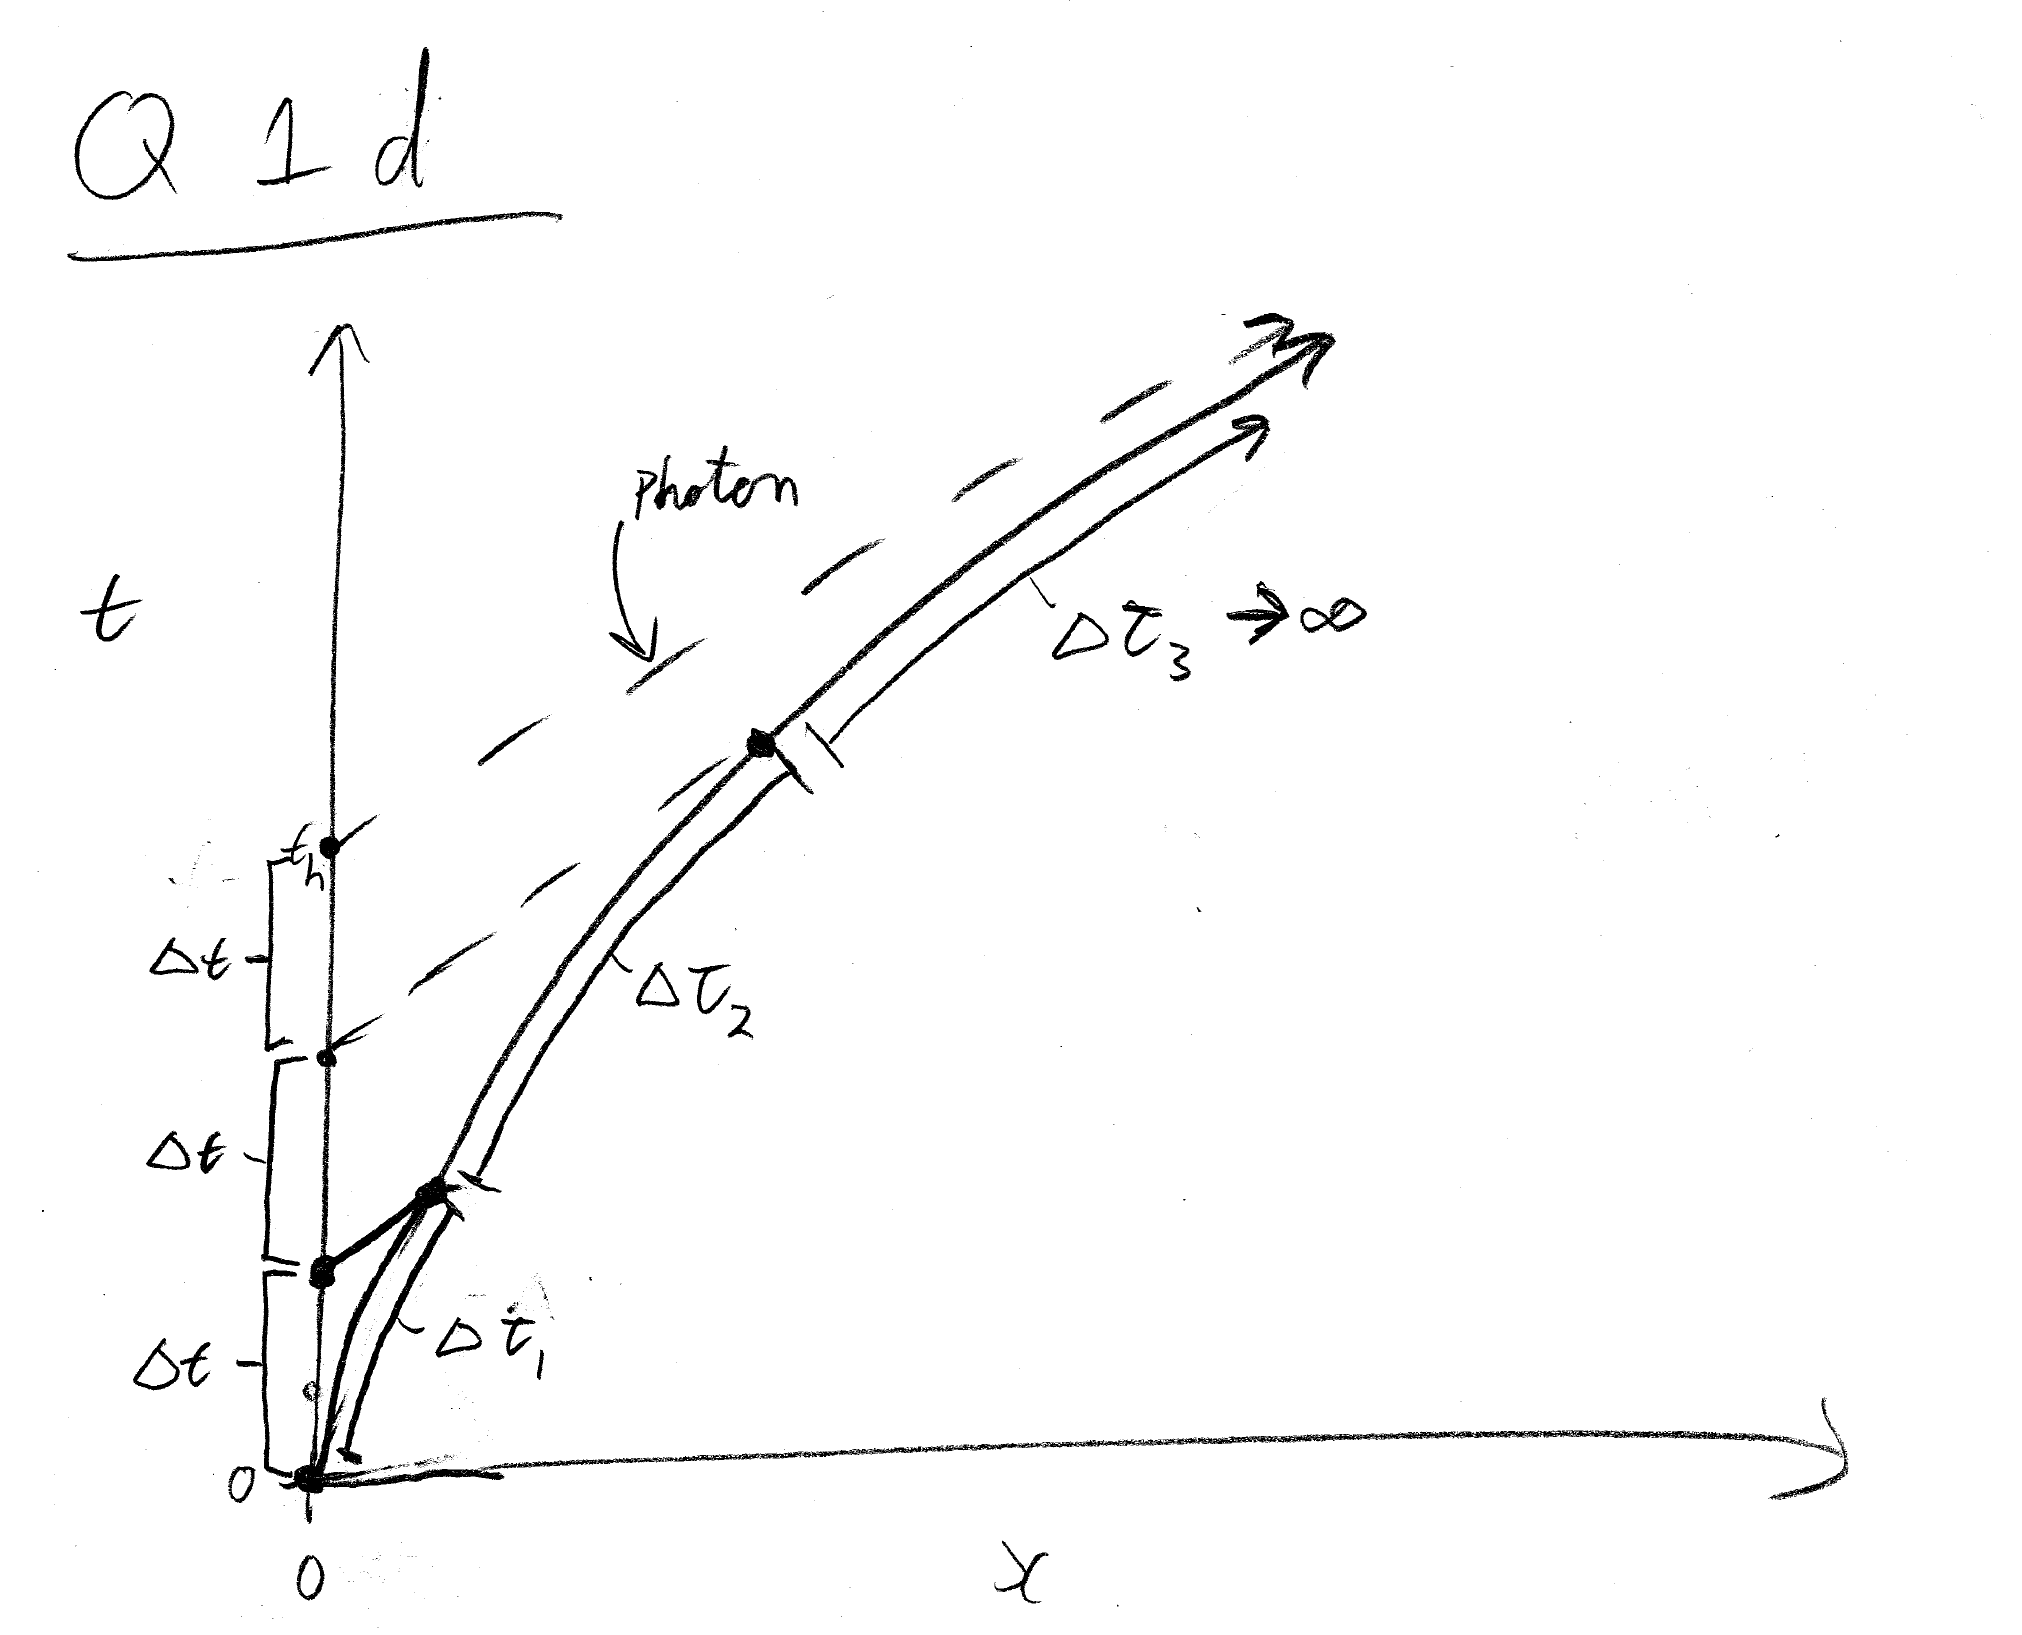 Q 1 d
Photon
t
Δτ₃ → ∞
t_h
Δt
Δτ₂
Δt
Δτ₁
Δt
0
0
x